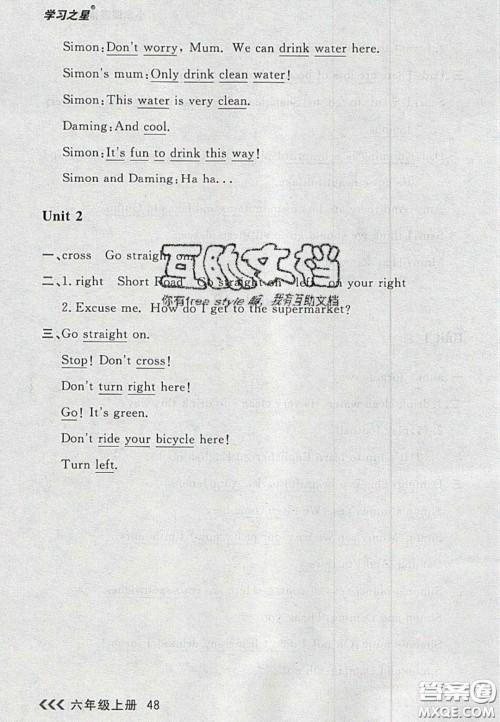 学习之星®
Simon: Don't worry, Mum. We can drink water here.
Simon's mum: Only drink clean water!
Simon: This water is very clean.
Daming: And cool.
Simon: It's fun to drink this way!
Simon and Daming: Ha ha...
Unit 2
一、cross Go straight on
互助文档
二、1. right Short Road Go straight on left on your right
你有free style 啊, 我有互助文档
2. Excuse me. How do I get to the supermarket?
三、Go straight on.
Stop! Don't cross!
Don't turn right here!
Go! It's green.
Don't ride your bicycle here!
Turn left.
六年级上册 48
答案圈
MXQE.COM